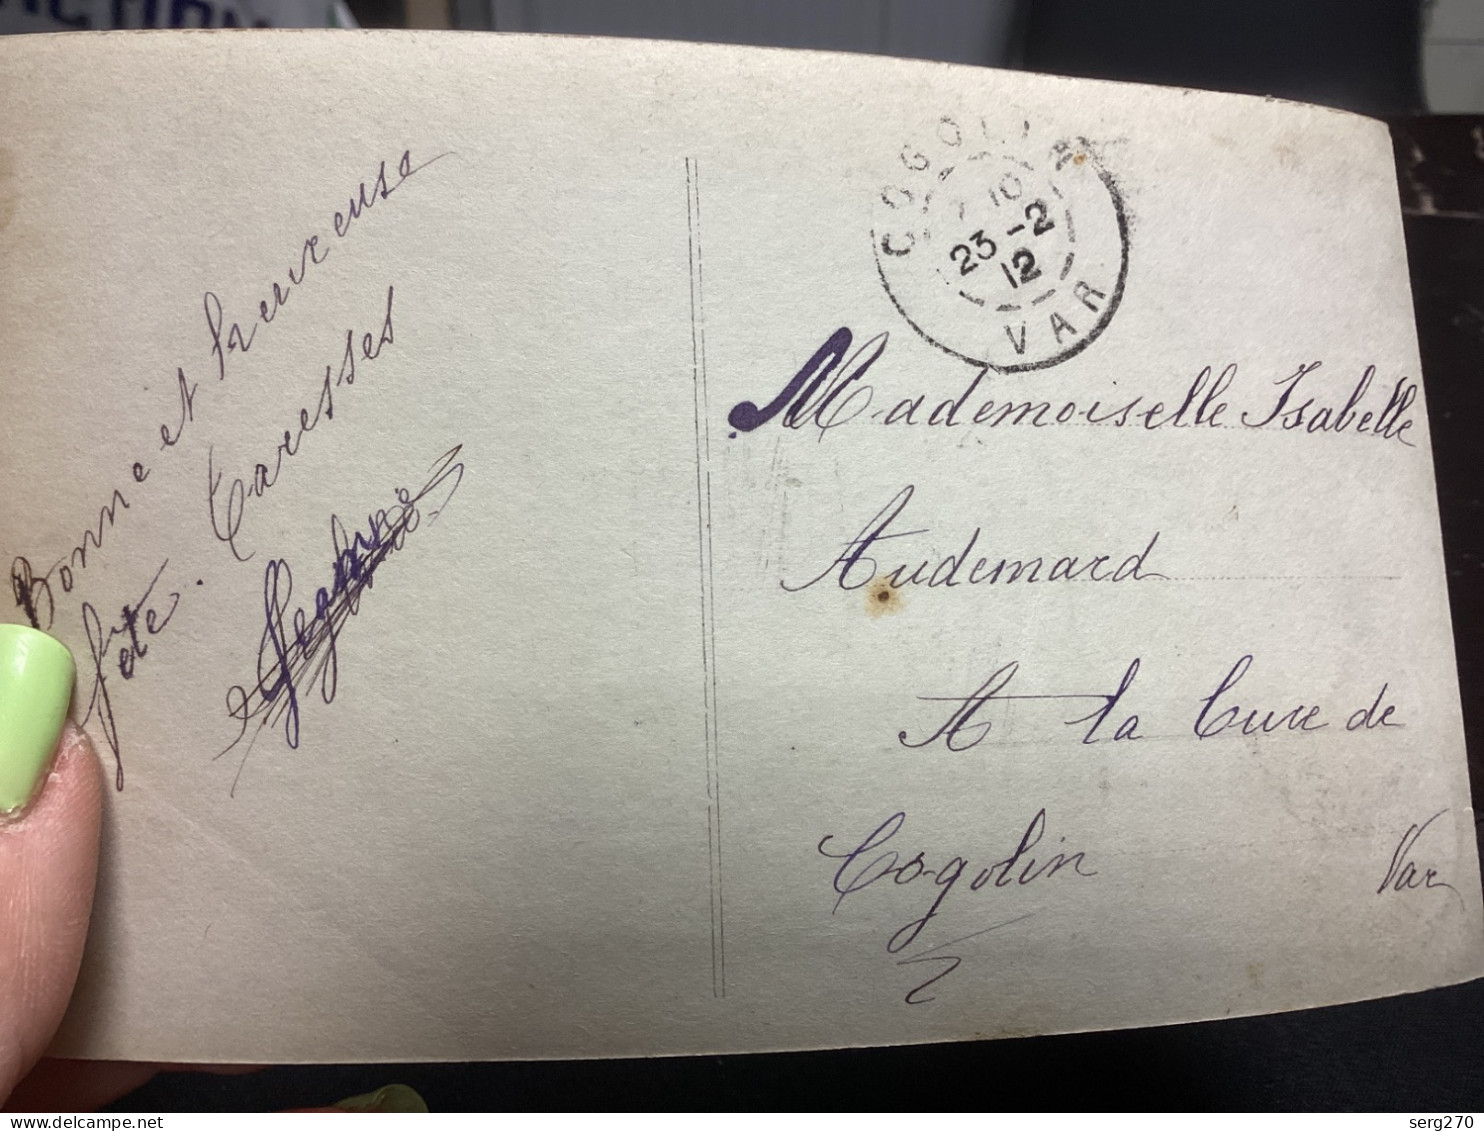 Bonne et heureuse
fête. Caresses
COGOLIN
10
23 -2
12
VAR
Mademoiselle Isabelle
Audemard
A la Cure de
Cogolin Var
serg270
delcampe.net